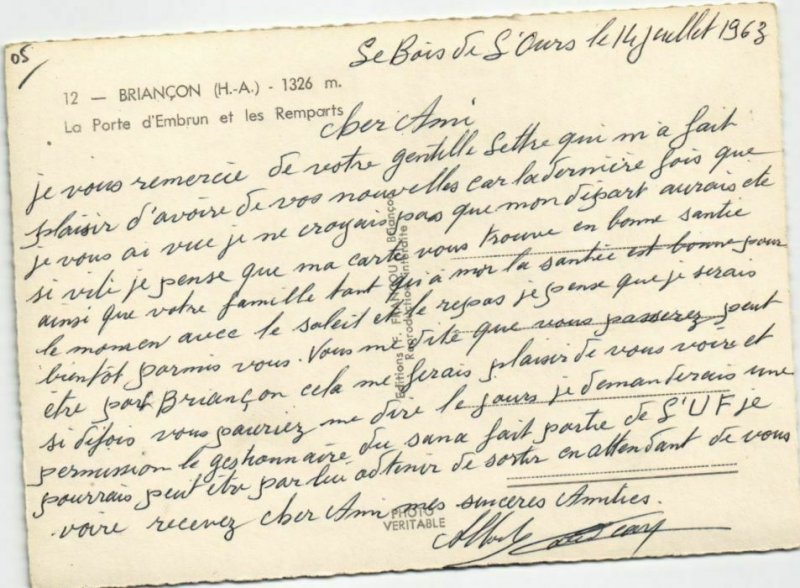 05
Le Bois de L'Ours le 14 juillet 1963
12 — BRIANÇON (H.-A.) - 1326 m.
La Porte d'Embrun et les Remparts
cher Ami
je vous remercie de votre gentille Lettre qui m'a fait
plaisir d'avoire de vos nouvelles car la dernière fois que
je vous ai vue je ne croyais pas que mon départ aurais été
si vite je pense que ma carte vous trouve en bonne santée
ainsi que votre famille tant qui à moi la santée est bonne pour
le momen avec le soleil et le repas je pense que je serais
bientôt parmis vous. Vous me dite que vous passerez peut
etre par Briançon cela me ferais plaisir de vous voire et
si difois vous pouriez me dire le jours je demanderais une
permission le gestionnaire du sana fait partie de L'UF je
pourrais peut etre par lui obtenir de sortir en attendant de vous
voire recevez cher Ami mes sinceres Amities.
Editions Briançon
Reproduction interdite
PHOTO
VERITABLE